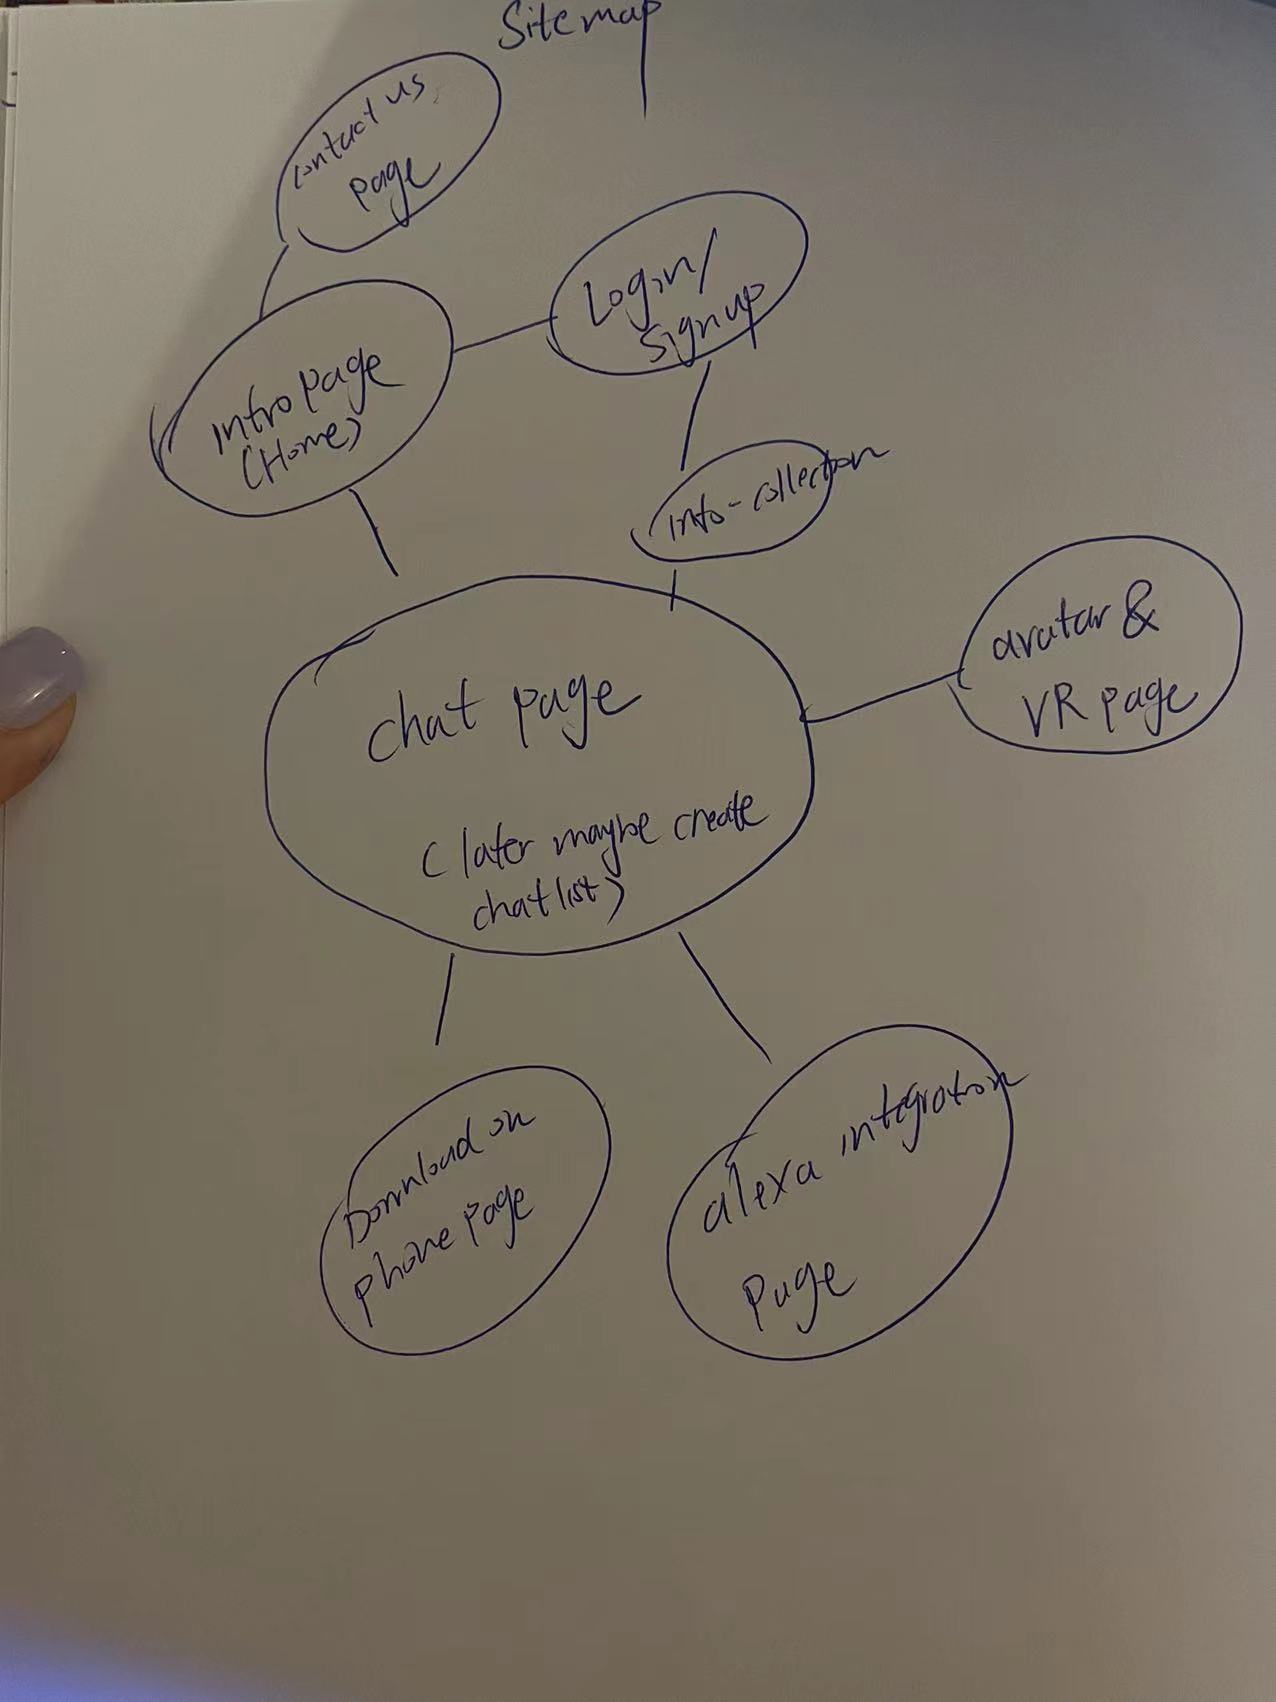 Sitemap
contact us
page
Login/
Signup
intro page
(Home)
info-collection
avatar &
VR page
chat page
(later maybe create
chat list)
Download on
phone page
alexa integration
page